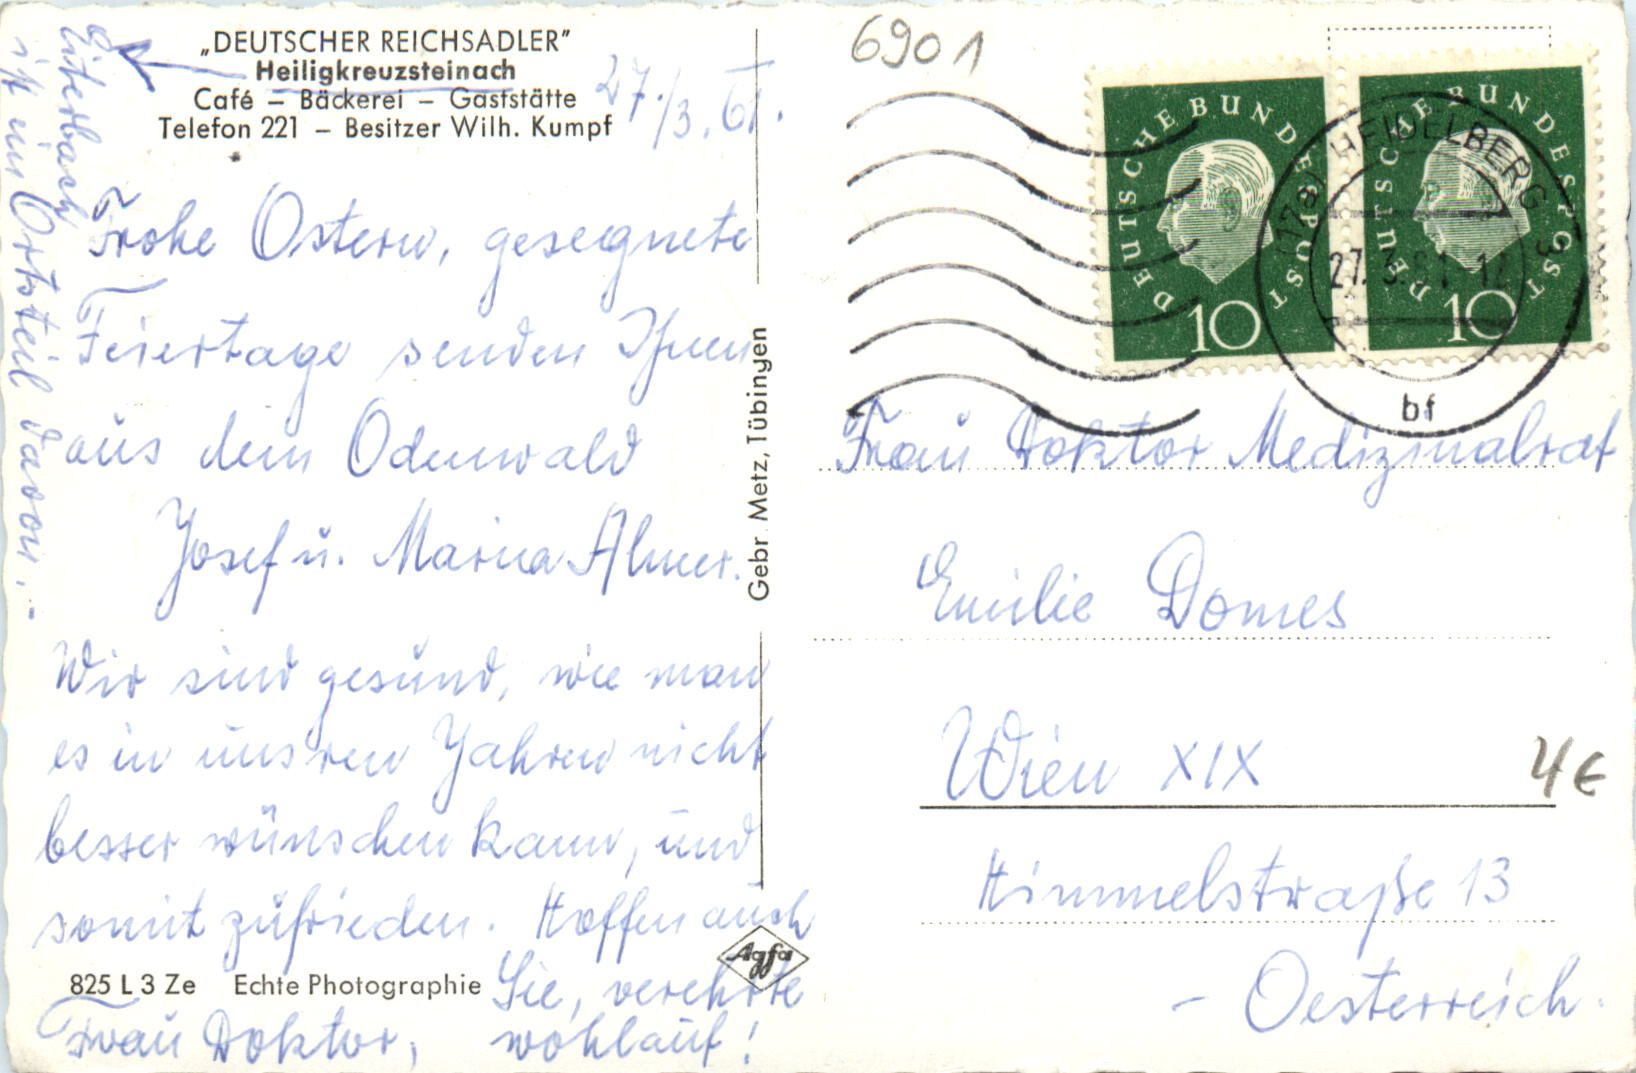 „DEUTSCHER REICHSADLER"
Heiligkreuzsteinach
Café – Bäckerei – Gaststätte
Telefon 221 – Besitzer Wilh. Kumpf
27./3. 61.
Eiterbach
ist ein Ortsteil davon.-
Frohe Ostern, gesegnete
Feiertage senden Ihnen
aus dem Odenwald
Josef u. Maria Almer.
Wir sind gesund, wie man
es in unsren Jahren nicht
besser wünschen kann, und
somit zufrieden. Hoffen auch
Sie, verehrte
Frau Doktor, wohlauf!
825 L 3 Ze Echte Photographie
Gebr. Metz, Tübingen
Agfa
6901
DEUTSCHE BUNDESPOST
10
DEUTSCHE BUNDESPOST
10
(17a) HEIDELBERG 3
27.3.61. 17
bf
Frau Doktor Medizinalrat
Emilie Domes
Wien XIX
4€
Himmelstraße 13
- Oesterreich.